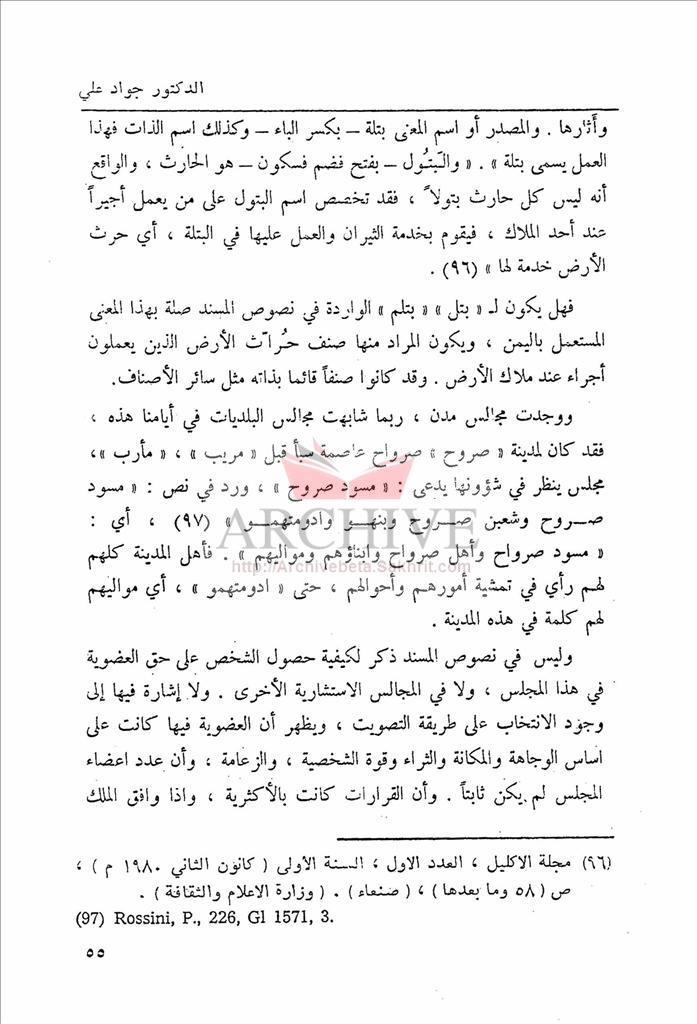 الدكتور جواد علي
وأثارها . والمصدر أو اسم المعنى بتلة ــ بكسر الباء ــ وكذلك اسم الذات فهذا
العمل يسمى بتلة » . « والبَتُول ــ بفتح فضم فسكون ــ هو الحارث ، والواقع
أنه ليس كل حارث بتولاً ، فقد تخصص اسم البتول على من يعمل أجيراً
عند أحد الملاك ، فيقوم بخدمة الثيران والعمل عليها في البتلة ، أي حرث
الأرض خدمة لها » (٩٦) .
فهل يكون لـ « بتل » « بتلم » الواردة في نصوص المسند صلة بهذا المعنى
المستعمل باليمن ، ويكون المراد منها صنف حُرّاث الأرض الذين يعملون
أجراء عند ملاك الأرض . وقد كانوا صنفاً قائما بذاته مثل سائر الأصناف.
ووجدت مجالس مدن ، ربما شابهت مجالس البلديات في أيامنا هذه ،
فقد كان لمدينة « صروح » صرواح عاصمة سبأ قبل « مريب » ، « مأرب »،
مجلس ينظر في شؤونها يدعى : « مسود صروح » ، ورد في نص : « مسود
صـــروح وشعبن صـــروح وبنهـــو وادومتهمـــو » (٩٧) ، أي :
« مسود صرواح وأهل صرواح وابناؤهم ومواليهم » . فأهل المدينة كلهم
لهم رأي في تمشية أمورهم وأحوالهم ، حتى « ادومتهمو » ، أي مواليهم
لهم كلمة في هذه المدينة .
ARCHIVE
http://Archivebeta.Sakhrit.com
وليس في نصوص المسند ذكر لكيفية حصول الشخص على حق العضوية
في هذا المجلس ، ولا في المجالس الاستشارية الأخرى . ولا إشارة فيها إلى
وجود الانتخاب على طريقة التصويت ، ويظهر أن العضوية فيها كانت على
اساس الوجاهة والمكانة والثراء وقوة الشخصية ، والزعامة ، وأن عدد اعضاء
المجلس لم يكن ثابتاً . وأن القرارات كانت بالأكثرية ، واذا وافق الملك
(٩٦) مجلة الاكليل ، العدد الاول ، السنة الاولى ( كانون الثاني ١٩٨٠ م ) ،
ص ( ٥٨ وما بعدها ) ، ( صنعاء ) . ( وزارة الاعلام والثقافة ) .
(97) Rossini, P., 226, Gl 1571, 3.
٥٥